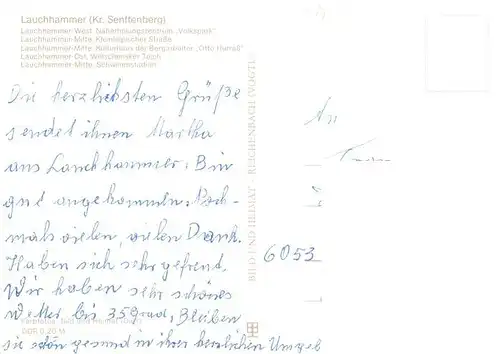 Lauchhammer (Kr. Senftenberg)
Lauchhammer-West, Naherholungszentrum „Volkspark"
Lauchhammer-Mitte, Kleinleipischer Straße
Lauchhammer-Mitte, Kulturhaus der Bergarbeiter „Otto Hurraß"
Lauchhammer-Ost, Wehrschenaker Teich
Lauchhammer-Mitte, Schwimmstadion
Die herzlichsten Grüße
sendet ihnen Martha
aus Lauchhammer. Bin
gut angekommen. Noch-
mals vielen, vielen Dank.
Haben sich sehr gefreut.
Wir haben sehr schönes
Wetter bis 35 grad, Bleiben
sie schön gesund in ihrer herrlichen Umgeb
Farbfotos: Bild und Heimat
DDR 0,20 M
BILD UND HEIMAT REICHENBACH (VOGTL)
An
6053